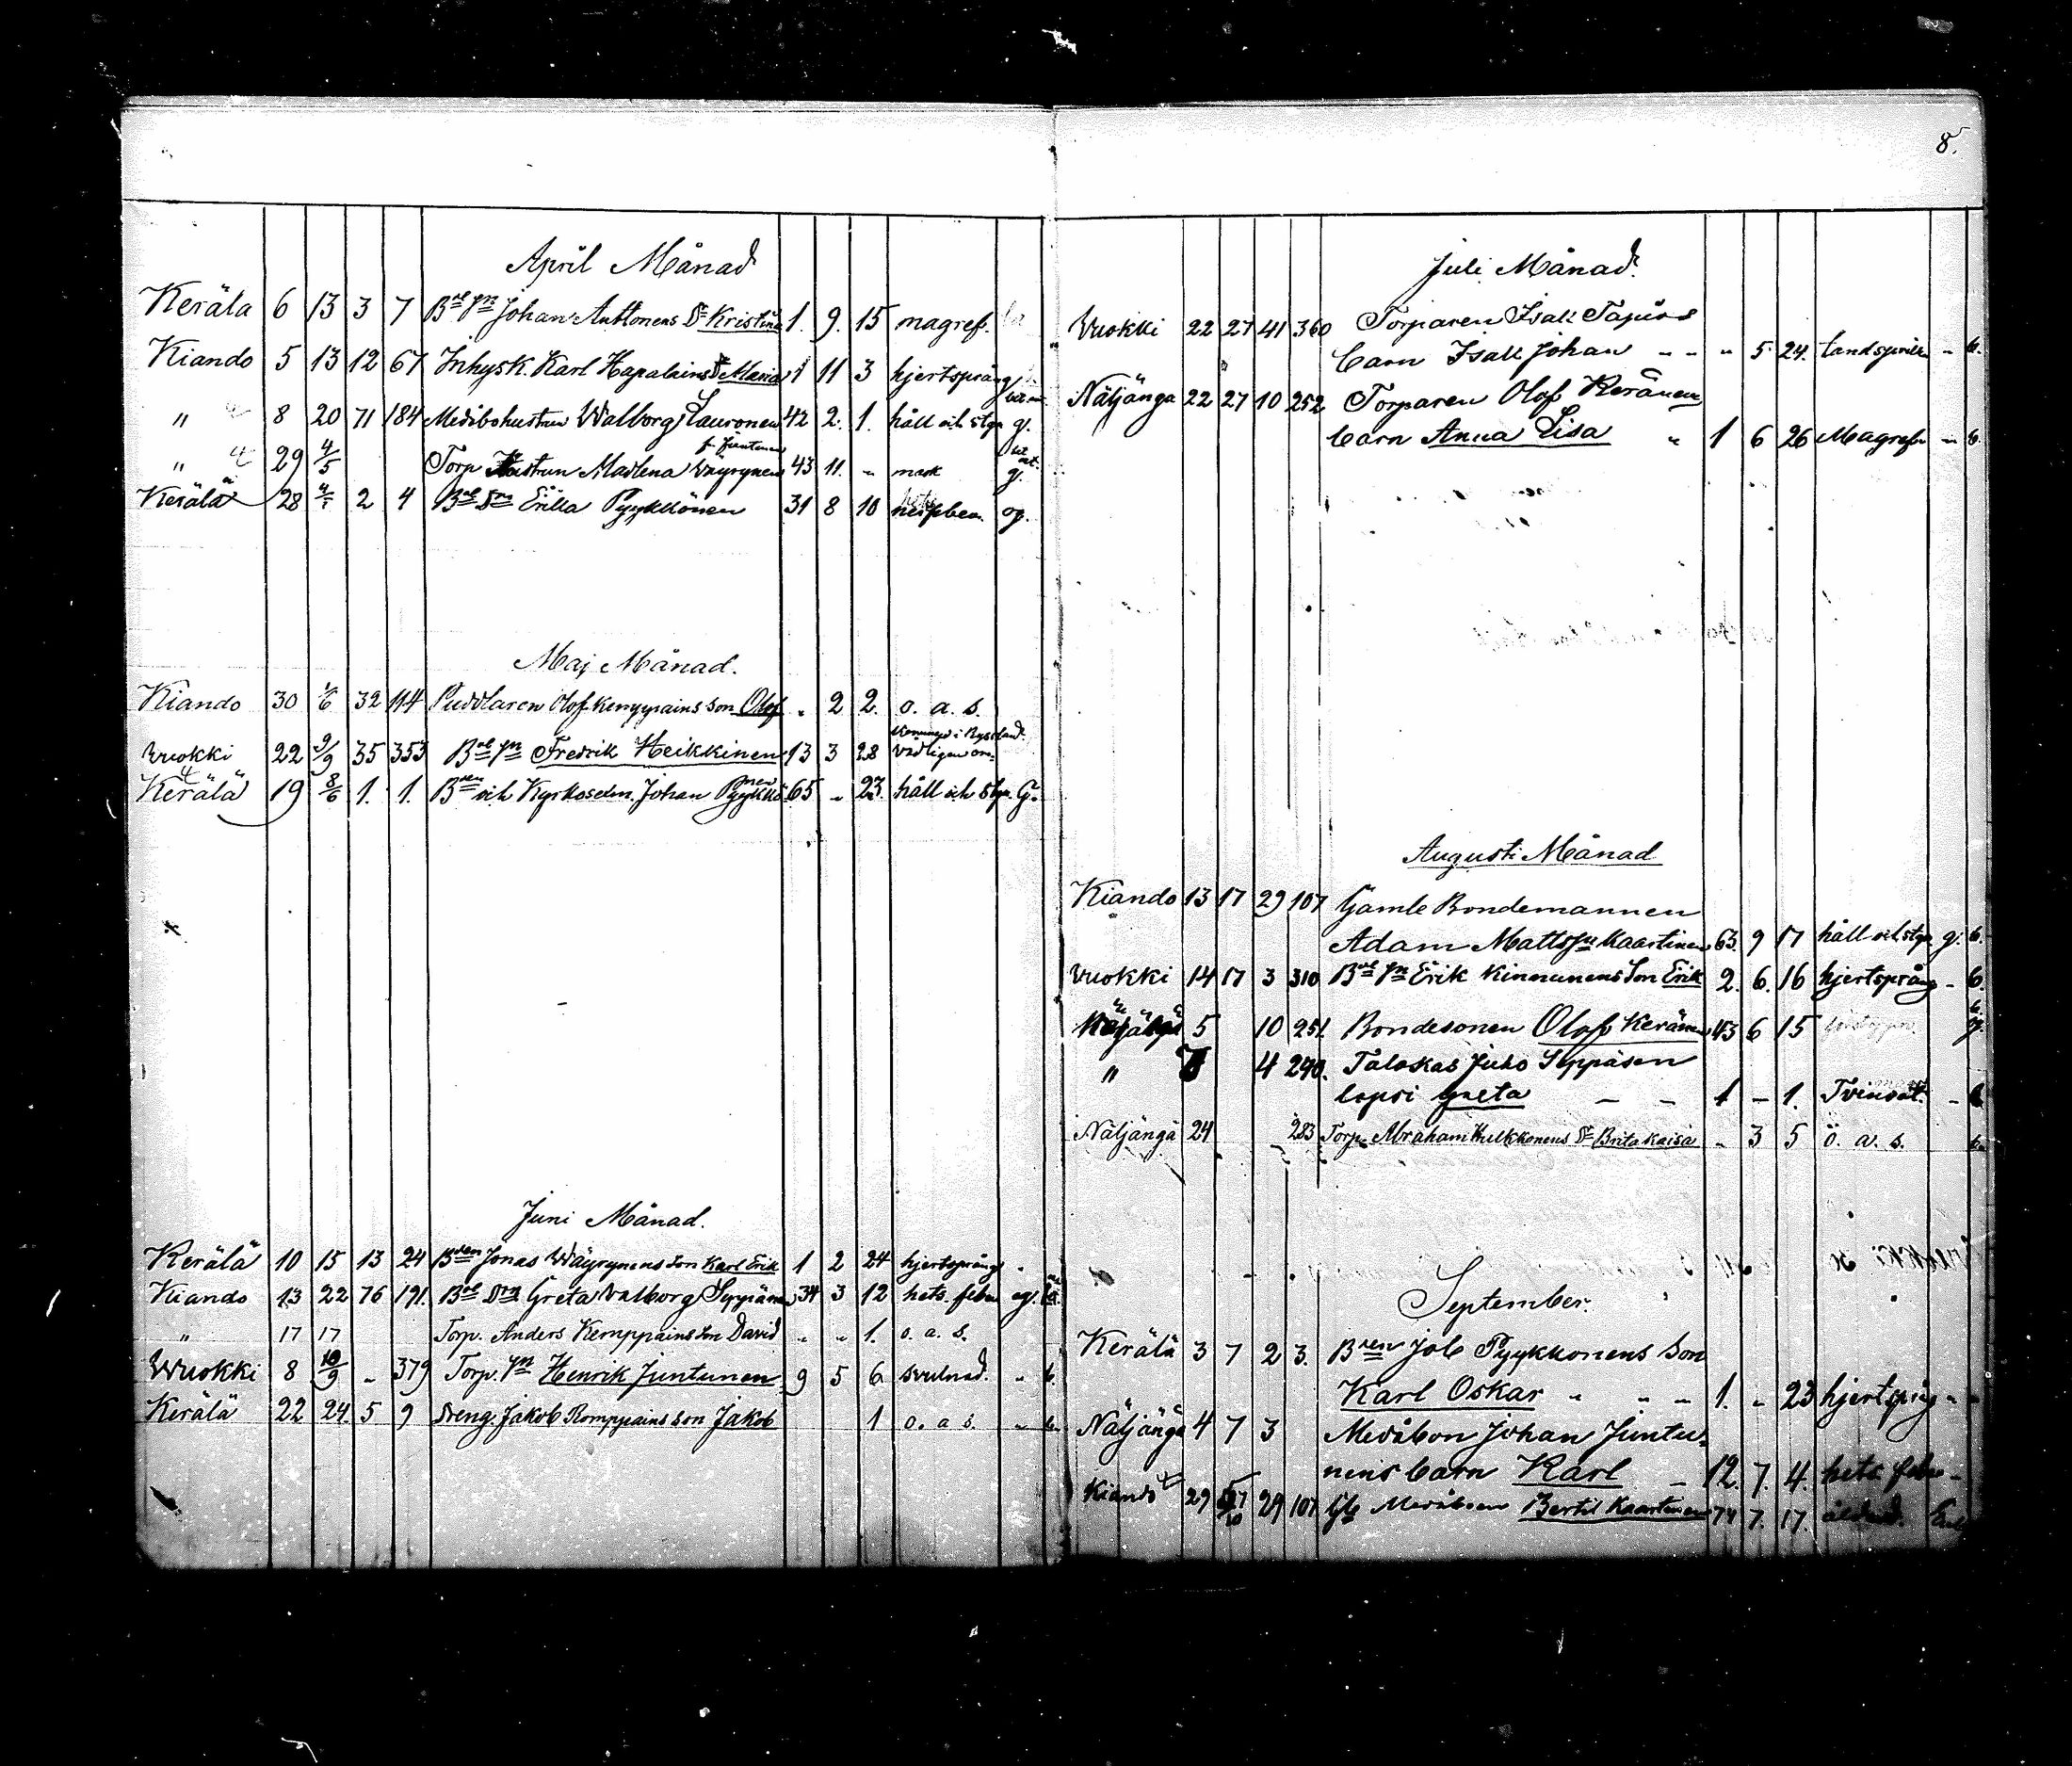 April Månad
Kerälä 6 13 3 7 B<sup>de</sup> s<sup>n</sup> Johan Anttonens D<sup>r</sup> Kristina 1. 9. 15 magref.
Kiando 5 13 12 67 Inhysk. Karl Hapalains D<sup>r</sup> Maria 1 11 3 hjertsprång
" 8 20 71 184 Medåbohustrun Walborg Lauronen 42 2. 1. håll och styn g.
f. Juntunen
" 29 4/5 Torp Hustrun Madlena Väyrynen 43 11. " mask g.
Kerälä 28 4/5 2 4 B<sup>de</sup> D<sup>tn</sup> Erika Pyykkönen 31 8 10 og.
Maj Månad.
Kiando 30 1/6 32 114 Puddlaren Olof Kemppains son Olof " 2 2. o. a. s.
Ryssland.
Wuokki 22 9/9 35 353 B<sup>de</sup> s<sup>n</sup> Fredrik Heikkinen 13 3 28
nen
Kerälä 19 8/6 1. 1. B<sup>den</sup> och Kyrkoselm. Johan Pyykkö 65 " 23. håll och styn. G.
Juni Månad.
Kerälä 10 15 13 24 B<sup>den</sup> Jonas Wäyrynens son Karl Erik 1 2 24 hjertsprång "
Kiando 13 22 76 191. B<sup>de</sup> D<sup>tn</sup> Greta Walborg Seppänen 34 3 12 hets. feber og.
" 17 17 Torp. Anders Kemppains son David " " 1. o. a. s.
Wuokki 8 10/9 " 379 Torp. s<sup>n</sup> Henrik Juntunen 9 5 6 svulnad. " b.
Kerälä 22 24 5 9 Dreng. Jakob Romppains son Jakob 1 o. a. s. " b.
8.
Juli Månad.
Wuokki 22 27 41 360 Torparen Isak Tapios
barn Isak Johan " " " 5. 24. tandsprickn. " b.
Näljänga 22 27 10 252 Torparen Olof Keränens
barn Anna Lisa " 1 6 26 Magrefn " b.
Augusti Månad
Kiando 13 17 29 107 Gamle Bondemannen
Adam Mattss<sup>n</sup> Kaartinen 63. 9 17 håll och styn g. b.
Wuokki 14 17 3 310 B<sup>de</sup> s<sup>n</sup> Erik Kinnunens Son Erik 2. 6. 16 hjertsprång " b.
Näljängä 5 10 251. Bondesonen Olof Keränen 43 6 15 g.
" 7 4 290. Talokas Juho Seppäsen
lapsi Greta — — 1 — 1. Tvinsot. "
Näljänga 24 " 283 Torp. Abraham Kulkkonens D<sup>r</sup> Brita Kaisa " 3 5 ö. a. s. b.
September.
Kerälä 3 7 2 3. B<sup>den</sup> Job Pyykkonens Son
Karl Oskar " " " 1. " 23 hjertspång "
Näljänga 4 7 3 Medåbon Johan Juntu-
nens barn Karl " 12. 7. 4. hets feber "
Kiando 29 29 107 Medåboen Bertil Kaartinen 74 7. 17. ålderd. Enkl.